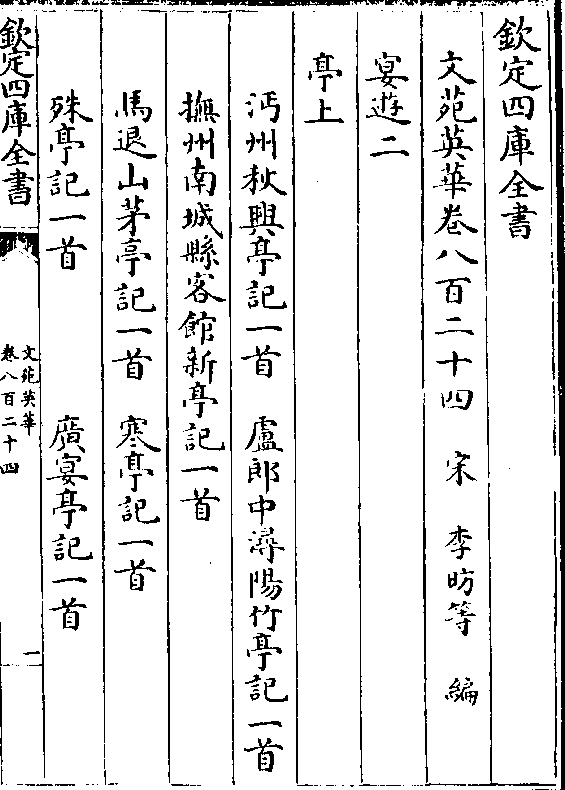 欽定四庫全書
文苑英華卷八百二十四　宋　李昉等　編
宴遊二
亭上
沔州秋興亭記一首　盧郎中潯陽竹亭記一首
撫州南城縣客館新亭記一首
馬退山茅亭記一首　寒亭記一首
殊亭記一首　廣宴亭記一首
欽定四庫全書
文苑英華
卷八百二十四
一